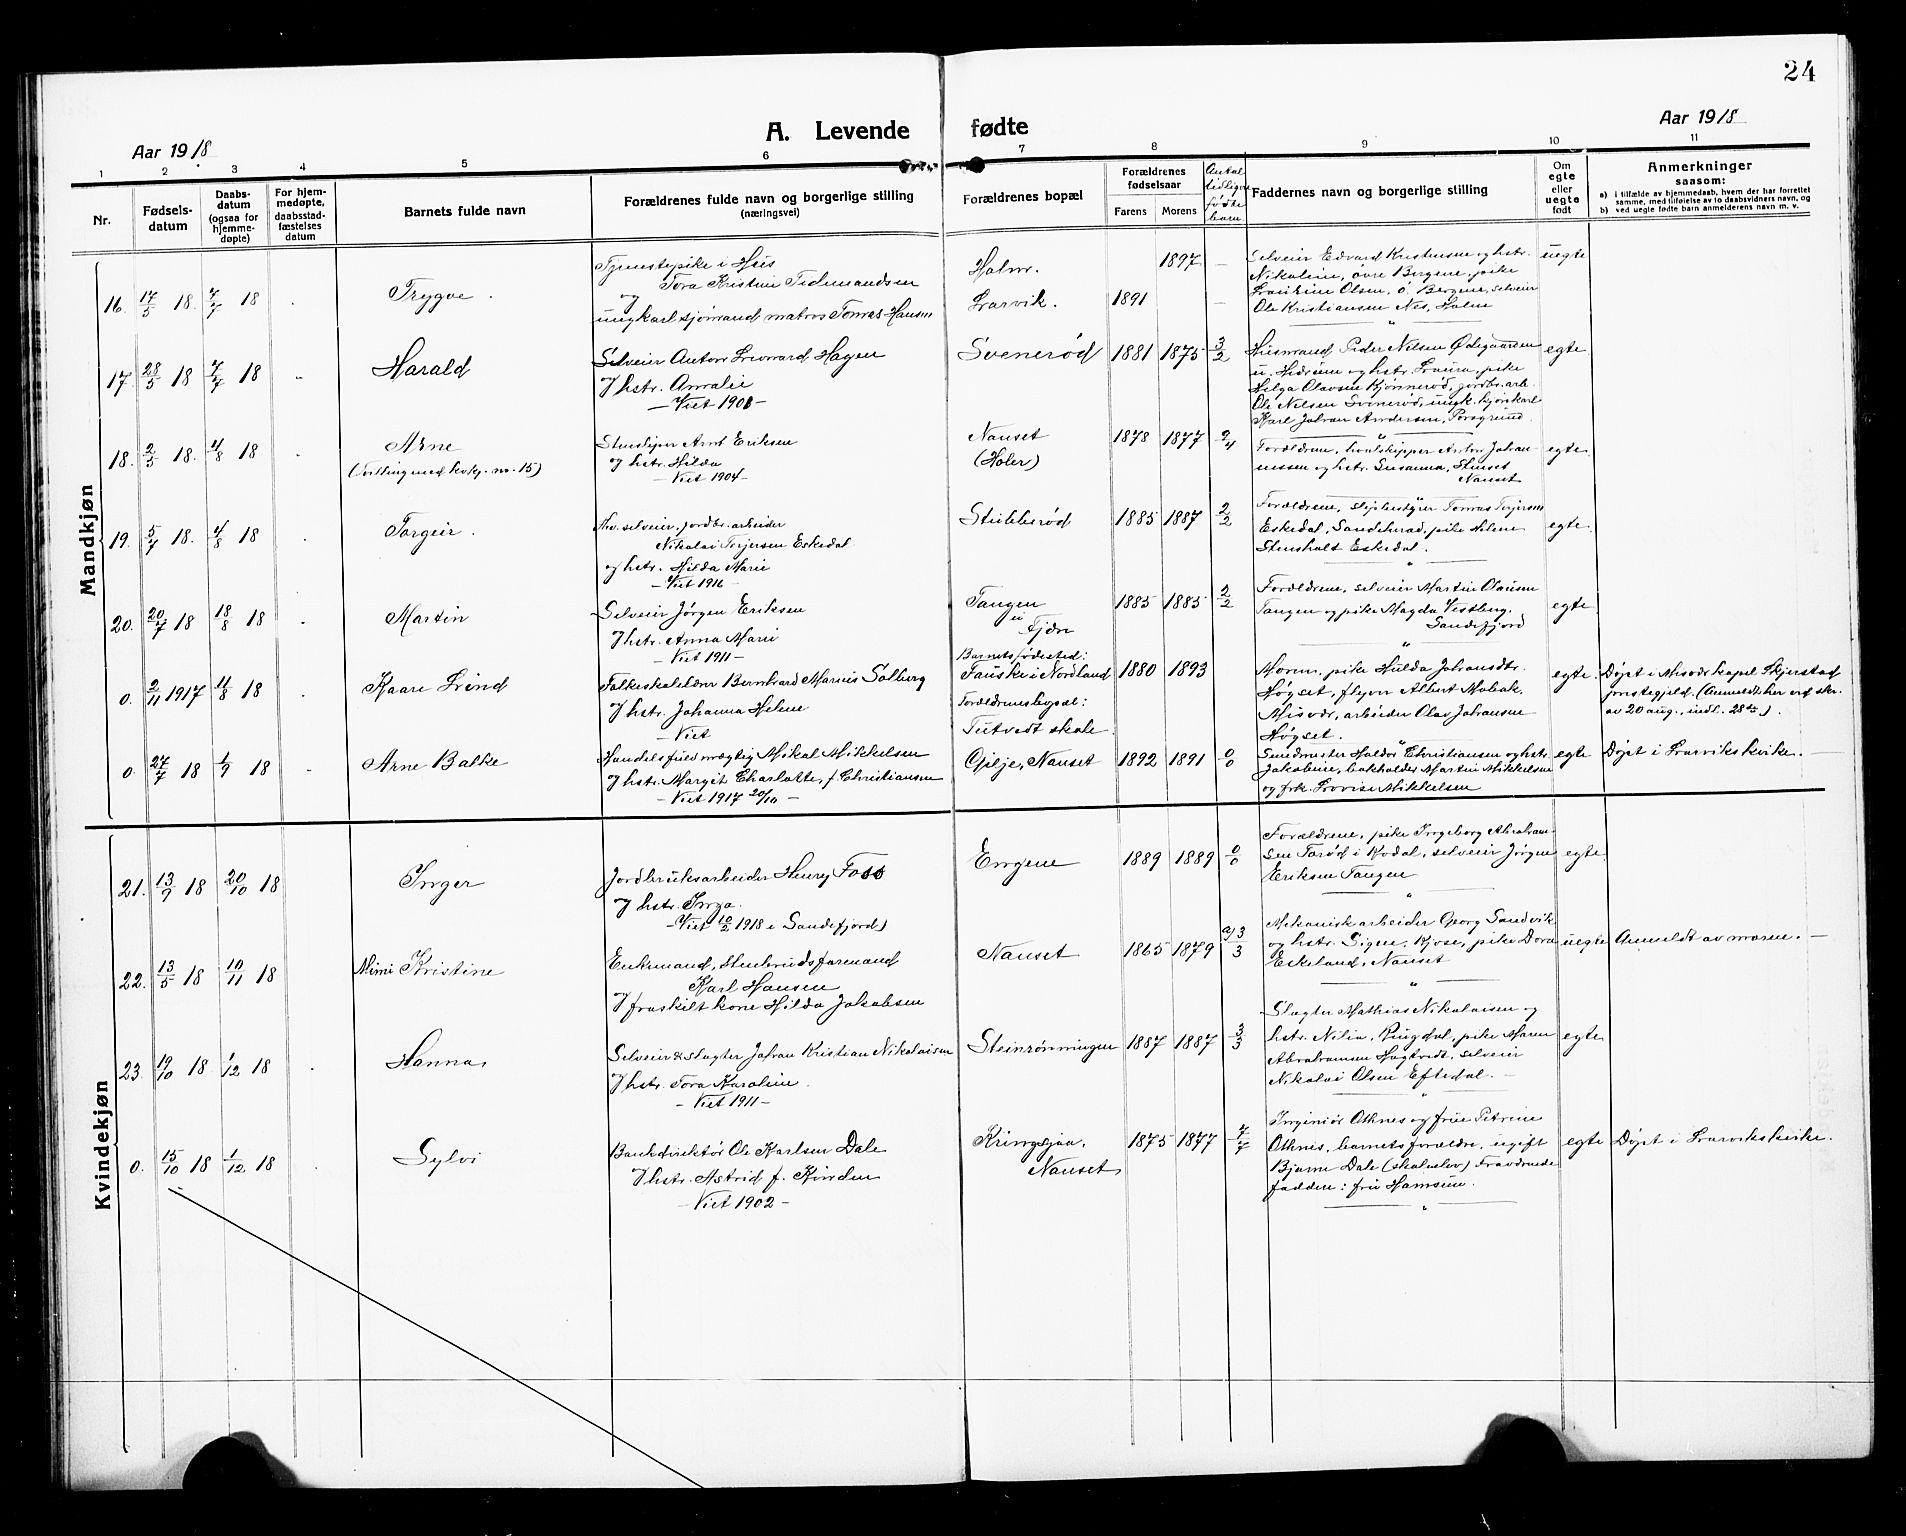 24
A. Levende fødte
Aar 1918
Aar 1918
1 2 3 4 5 6 7 8 9 10 11
Nr.
Fødsels-
datum
Daabs-
datum
(ogsaa for
hjemme-
døpte)
For hjem-
medøpte,
daabsstad-
fæstelses
datum
Barnets fulde navn
Forældrenes fulde navn og borgerlige stilling
(næringsvei)
Forældrenes bopæl
Forældrenes
fødselsaar
Farens Morens
Antal
tidligere
fødte
barn
Faddernes navn og borgerlige stilling
Om
egte
eller
uegte
født
Anmerkninger
saasom:
a) i tilfælde av hjemmedaab, hvem der har forrettet
samme, med tilføielse av to daabsvidners navn, og
b) ved uegte fødte barn anmelderens navn m. v.
Mandkjøn
16. 17/5 18. 7/7 18
Trygve.
Tjenestepike i Hus
Tora Kristine Tidemandsen
og
ungkarl sjømand matros Tomas Hansen
Holm.
Larvik.
1897 —
1891 —
Selveier Edvard Kristensen og hstr.
Nikoline, øvre Bergene, pike
Olsen, ø. Bergene, selveier
Ole Kristiansen Nes, Holm
uegte
17. 28/5 18 7/7 18
Harald
Selveier Anton Hagen
og hstr. Amalie
— Viet 1901 —
Svenerød
1881 1875 3/2
Husmand Peder Nilsen Ødegaarden
u. Hedrum og hstr. Laura, pike
Helga Olavsen Kjønnerød, jordbr. arb.
Ole Nilsen Svenerød, ungk. kjørekarl
Karl Johan Andersen, Porsgrund.
egte
18. 2/5 18. 4/8 18
Arne
(Tvilling med kvkj. nr. 15)
Arnt Eriksen
og hstr. Hilda
— Viet 1904 —
Nanset
(Holer)
1878 1877 9/4
Forældrene, hvalskipper Anton Johan-
nessen og hstr. Susanna,
Nanset
egte
19. 5/7 18. 4/8 18
Torgeir.
selveier, jordbr. arbeider
Nikolai Torjersen Eskedal
og hstr. Hilda Marie
— Viet 1916 —
Stubberød
1885 1887 2/2
Forældrene, Tomas Torjersen
Eskedal, Sandeherad, pike Helene
Stensholt Eskedal.
egte
20. 20/7 18 18/8 18
Martin
Selveier Jørgen Eriksen
og hstr. Anna Marie
— Viet 1911 —
Tangen
i
Tjøln
1885 1885 2/2
Forældrene, selveier Martin Olausen
Tangen og pike Magda Vestberg,
Sandefjord
egte
0. 2/11 1917 11/8 18
Kaare Lind
Folkeskolelærer Bernhard Marius Solberg
og hstr. Johanna Helene
— Viet
Barnets fødested:
Fauske i Nordland
Forældrenes bopæl:
Tutvedt skole.
1880 1893
Moren, pike Hulda Johansdtr.
Høgset, Albert Mobak,
Misvær, arbeider Olav Johansen
Høgset.
egte.
Døpt i Misvær kapel Skjerstad
prestegjeld. (Anmeldt her ved skr.
av 20 aug., indl. 28de).
0. 27/7 18 1/9 18
Arne Balke
Handelsfuldmægtig Mikal Mikkelsen
og hstr. Margit Charlotte, f. Christiansen
— Viet 1917 20/10 —
Gilje, Nanset
1892 1891 0/0
Haldor Christiansen og hstr.
Jakobine, bokholder Martin Mikkelsen
og frk. Lovise Mikkelsen
egte
Døpt i Larviks kirke. —
Kvindekjøn
21. 13/9 18 20/10 18
Inger
Jordbruksarbeider Henry Foss
og hstr. Inga.
— Viet 10/2 1918 i Sandefjord)
Engene
1889 1889 0/0
Forældrene, pike Ingeborg Abraham-
sen Torød i Kodal, selveier Jørgen
Eriksen Tangen
egte.
22. 13/5 18 10/11 18
Mimi Kristine
Enkemand, Stenbrudsformand
Karl Hansen
og fraskilt kone Hilda Jakobsen
Nanset
1865 1879 3/3
Mekanisk arbeider Georg Sandvik
og hstr. Signe, Kjose, pike Dora
Eskeland, Nanset
uegte
Anmeldt av moren. —
23. 19/10 18 1/12 18
Hanna
Selveier & slagter Johan Kristian Nikolaisen
og hstr. Tora Karoline.
— Viet 1911 —
Steinrønningen
1887 1887 3/3
Slagter Mathias Nikolaisen og
hstr. Nilia, Rugdal, pike Maren
Abrahamsen Hogtvedt, selveier
Nikolai Olsen Eftedal. —
egte
0. 15/10 18 1/12 18
Sylvi
Bankdirektør Ole Karlsen Dale
og hstr. Astrid f. Kinden
— Viet 1902 —
Kringsjaa,
Nanset
1875 1877 7/7
Ingeniør Othnes og frue Petrine
Othnes, barnets forældre, ugift
Bjarne Dale (skoleelev) Fraværende
faddere: fru Hamsun.
egte
Døpt i Larviks kirke.